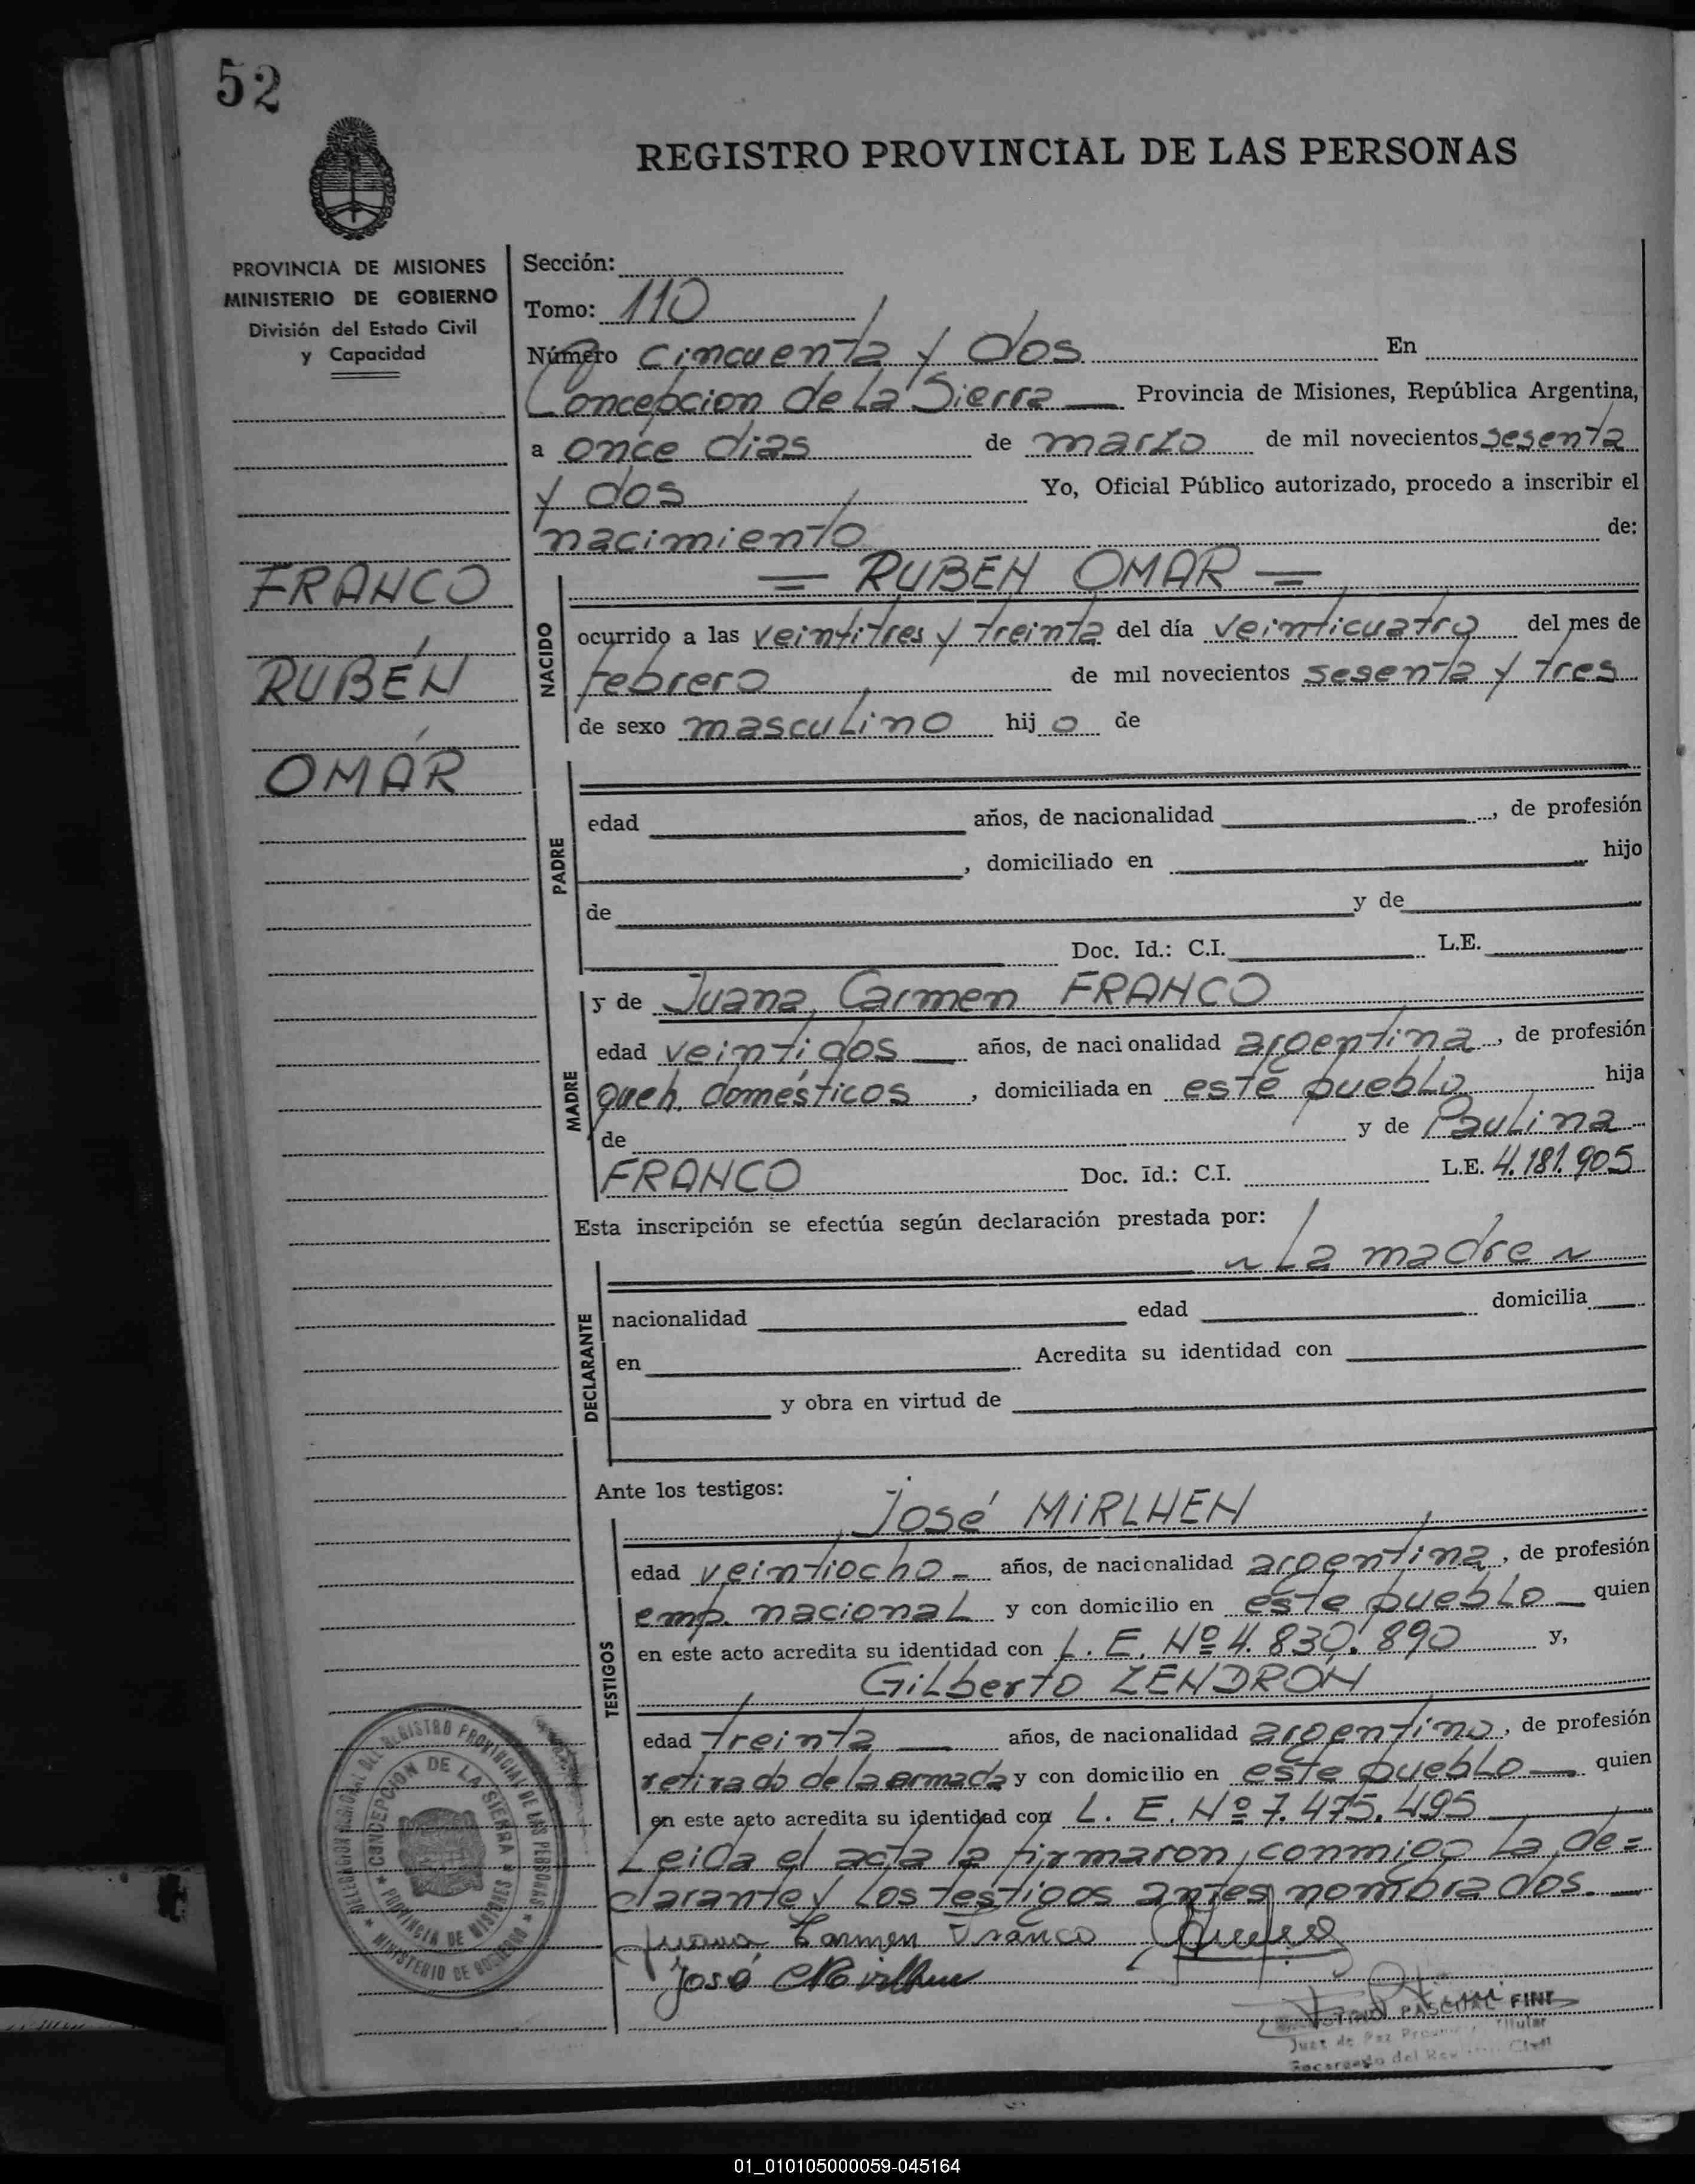 52
REGISTRO PROVINCIAL DE LAS PERSONAS
PROVINCIA DE MISIONES
MINISTERIO DE GOBIERNO
División del Estado Civil
y Capacidad
FRANCO
RUBÉN
OMÁR
Sección:
Tomo: 110
Número cincuenta y dos En
Concepcion de la Sierra — Provincia de Misiones, República Argentina,
a once dias de marzo de mil novecientos sesenta
y dos Yo, Oficial Público autorizado, procedo a inscribir el
nacimiento de:
= RUBEN OMAR =
NACIDO
ocurrido a las veintitres y treinta del día veinticuatro del mes de
febrero de mil novecientos sesenta y tres
de sexo masculino hijo de
PADRE
edad años, de nacionalidad , de profesión
, domiciliado en hijo
de y de
Doc. Id.: C.I. L.E.
MADRE
y de Juana Carmen FRANCO
edad veintidos — años, de nacionalidad argentina, de profesión
queh. domésticos, domiciliada en este pueblo hija
de y de Paulina
FRANCO Doc. Id.: C.I. L.E. 4.181.905
Esta inscripción se efectúa según declaración prestada por:
~ La madre ~
DECLARANTE
nacionalidad edad domicilia
en Acredita su identidad con
y obra en virtud de
Ante los testigos:
José MIRLHEN
TESTIGOS
edad veintiocho - años, de nacionalidad argentina, de profesión
emp. nacional y con domicilio en este pueblo — quien
en este acto acredita su identidad con L. E. Nº 4.830.890 y,
Gilberto ZENDRÓN
edad treinta — años, de nacionalidad argentino, de profesión
retirado de la armada y con domicilio en este pueblo — quien
en este acto acredita su identidad con L. E. Nº 7.475.495
Leida el acta la firmaron, conmigo la de=
clarante y los testigos antes nombrados. —
Juana Carmen Franco
José Mirlhen
PASCUAL FINI
Juez de Paz Titular
Encargado del Civil
DELEGACION REGIONAL DEL REGISTRO PROVINCIAL DE LAS PERSONAS
* CONCEPCION DE LA SIERRA *
PROVINCIA DE MISIONES
* MINISTERIO DE GOBIERNO *
01_010105000059-045164